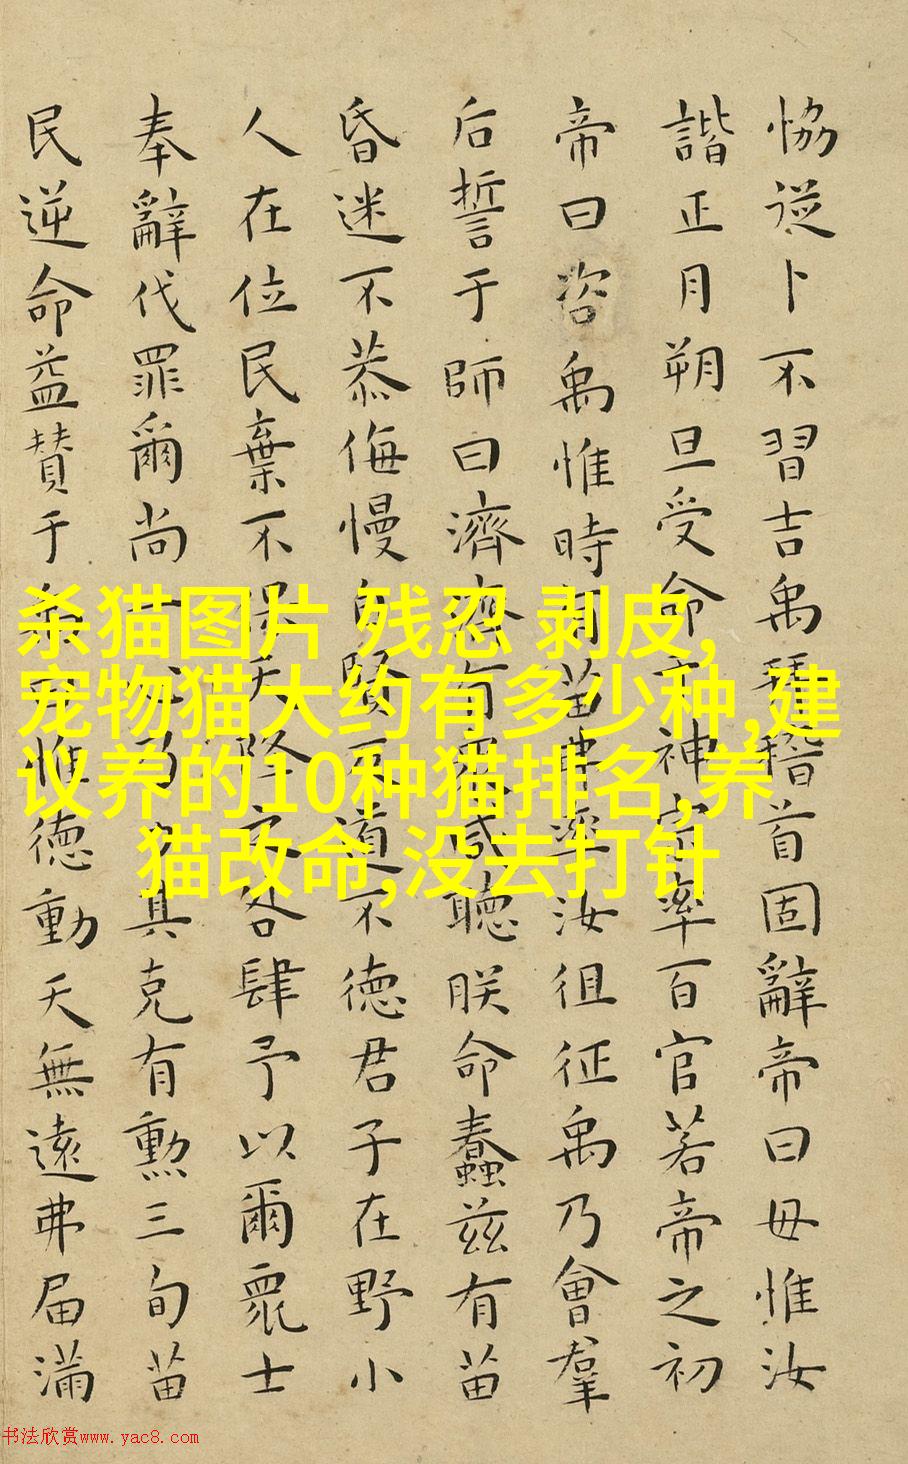 恊從卜不習吉禹拜稽首固辭帝曰毋惟汝
諧正月朔旦受命于神宗率百官若帝之初
帝曰咨禹惟時有苗弗率汝徂征禹乃會羣
后誓于師曰濟濟有眾咸聽朕命蠢茲有苗
昏迷不恭侮慢自賢反道不德君子在野小
人在位民棄不保天降咎肆予以爾眾士
奉辭伐罪爾尚一其克有勲三旬苗
民逆命益贊于惟德動天無遠弗届滿
杀猫图片 残忍 剥皮,
宠物猫大约有多少种,建
议养的10种猫排名,养
猫改命,没去打针
书法欣赏www.yac8.com